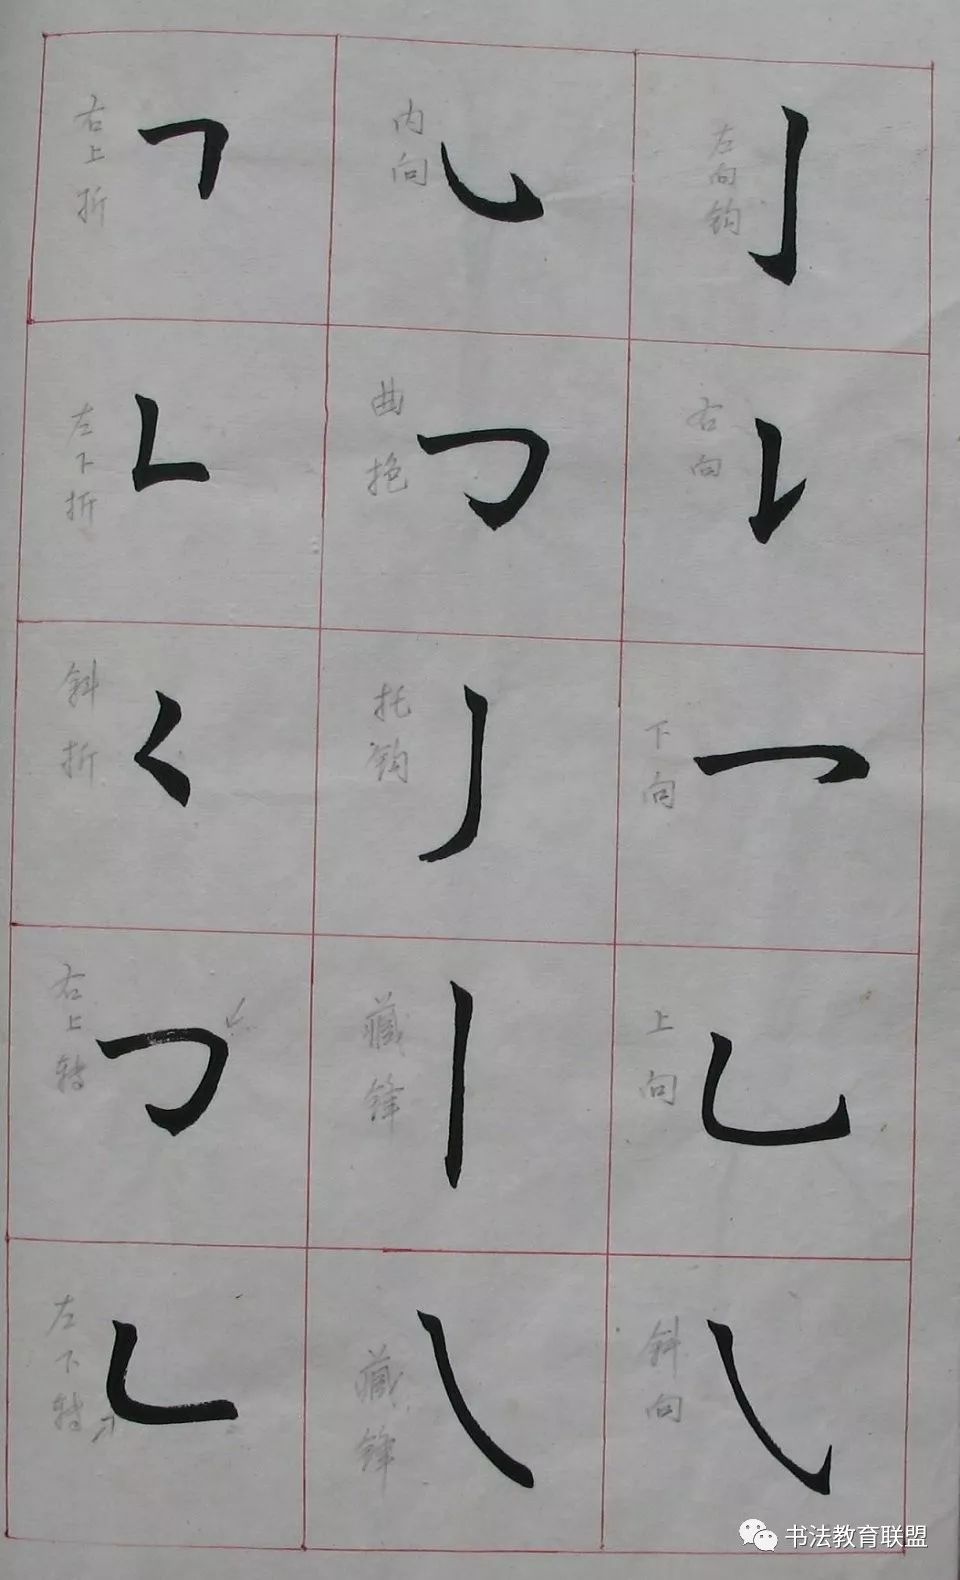 左向钩
右向
下向
上向
斜向
内向
曲抱
托钩
藏锋
藏锋
右上折
左下折
斜折
右上转
左下转
书法教育联盟